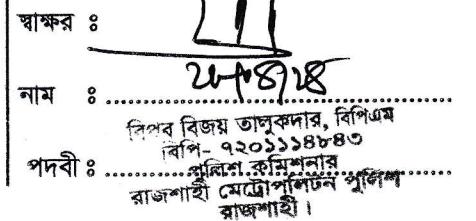 স্বাক্ষর ঃ
নাম ঃ
বিপ্লব বিজয় তালুকদার, বিপিএম
বিপি- ৭২০১১১৪৮৪৩
পদবী ঃ পুলিশ কমিশনার
রাজশাহী মেট্রোপলিটন পুলিশ
রাজশাহী।